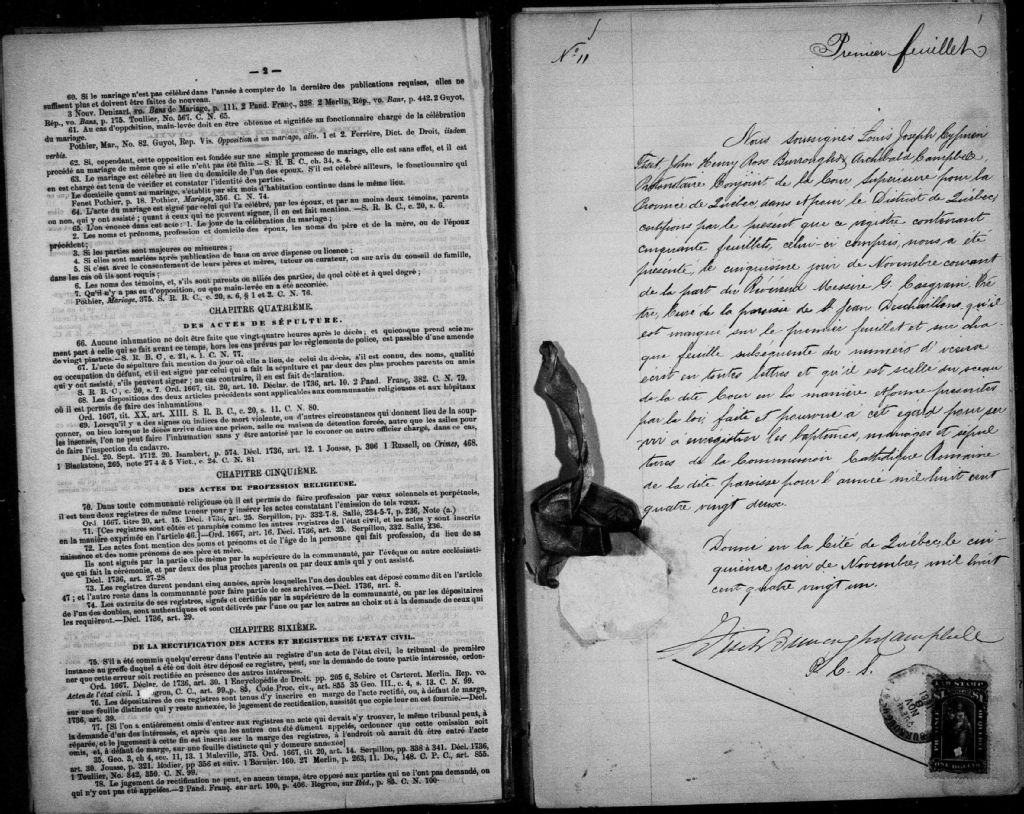 — 2 —
60. Si le mariage n'est pas célébré dans l'année à compter de la dernière des publications requises, elles ne
suffisent plus et doivent être faites de nouveau.
3 Nouv. Denizart, vo. Bans de Mariage, p. 111. 2 Pand. Franç., 328. 2 Merlin, Rép., vo. Bans, p. 442. 2 Guyot,
Rép., vo. Bans, p. 175. Toullier, No. 567. C. N. 65.
61. Au cas d'opposition, main-levée doit en être obtenue et signifiée au fonctionnaire chargé de la célébration
du mariage.
Pothier, Mar., No. 82. Guyot, Rep. Vis. Opposition à un mariage, alin. 1 et 2. Ferrière, Dict. de Droit, iisdem
verbis.
62. Si, cependant, cette opposition est fondée sur une simple promesse de mariage, elle est sans effet, et il est
procédé au mariage de même que si elle n'eût pas été faite.—S. R. B. C., ch. 34, s. 4.
63. Le mariage est célébré au lieu du domicile de l'un des époux. S'il est célébré ailleurs, le fonctionnaire qui
en est chargé est tenu de vérifier et constater l'identité des parties.
Le domicile quant au mariage, s'établit par six mois d'habitation continue dans le même lieu.
Fenet Pothier, p. 18. Pothier, Mariage, 356. C. N. 74.
64. L'acte du mariage est signé par celui qui l'a célébré, par les époux, et par au moins deux témoins, parents
ou non, qui y ont assisté ; quant à ceux qui ne peuvent signer, il en est fait mention.—S. R. B. C., c. 20, s. 6.
65. L'on énonce dans cet acte : 1. Le jour de la célébration du mariage ;
2. Les noms et prénoms, profession et domicile des époux, les noms du père et de la mère, ou de l'époux
précédent ;
3. Si les parties sont majeures ou mineures ;
4. Si elles sont mariées après publication de bans ou avec dispense ou licence ;
5. Si c'est avec le consentement de leurs pères et mères, tuteur ou curateur, ou sur avis du conseil de famille,
dans les cas où ils sont requis ;
6. Les noms des témoins, et, s'ils sont parents ou alliés des parties, de quel côté et à quel degré ;
7. Qu'il n'y a pas eu d'opposition, ou que main-levée en a été accordée.
Pothier, Mariage, 375. S. R. B. C., c. 20, s. 6, § 1 et 2. C. N. 76.
CHAPITRE QUATRIÈME.
DES ACTES DE SÉPULTURE.
66. Aucune inhumation ne doit être faite que vingt-quatre heures après le décès ; et quiconque prend sciem-
ment part à celle qui se fait avant ce temps, hors les cas prévus par les règlements de police, est passible d'une amende
de vingt piastres.—S. R. B. C., c. 21, s. 1. C. N. 77.
67. L'acte de sépulture fait mention du jour où elle a lieu, de celui du décès, s'il est connu, des noms, qualité
ou occupation du défunt, et il est signé par celui qui a fait la sépulture et par deux des plus proches parents ou amis
qui y ont assisté, s'ils peuvent signer ; au cas contraire, il en est fait déclaration.
S. R. B. C., c. 20, s. 7. Ord. 1667, tit. 20, art. 10. Déclar. de 1736, art. 10. 2 Pand. Franç, 382. C. N. 79.
68. Les dispositions des deux articles précédents sont applicables aux communautés religieuses et aux hôpitaux
où il est permis de faire des inhumations.
Ord. 1667, tit. XX, art. XIII. S. R. B. C., c. 20, s. 11. C. N. 80.
69. Lorsqu'il y a des signes ou indices de mort violente, ou d'autres circonstances qui donnent lieu de la soup-
çonner, ou bien lorsque le décès arrive dans une prison, asile ou maison de détention forcée, autre que les asiles pour
les insensés, l'on ne peut faire l'inhumation sans y être autorisé par le coroner ou autre officier chargé, dans ce cas,
de faire l'inspection du cadavre.
Décl. 20. Sept. 1712. 20. Isambert, p. 574. Décl. 1736, art. 12. 1 Jousse, p. 306 1 Russell, on Crimes, 468.
1 Blackstone, 265, note 27 4 & 5 Vict., c. 24. C. N. 81
CHAPITRE CINQUIÈME.
DES ACTES DE PROFESSION RELIGIEUSE.
70. Dans toute communauté religieuse où il est permis de faire profession par vœux solennels et perpétuels,
il est tenu deux registres de même teneur pour y insérer les actes constatant l'émission de tels vœux.
Ord. 1667. titre 20, art. 15. Décl. 1736, art. 25. Serpillon, pp. 332-7-8. Sallé, 234-5-7, p. 236, Note (a.)
71. [Ces registres sont côtés et paraphés comme les autres registres de l'état civil, et les actes y sont inscrits
en la manière exprimée en l'article 46.]—Ord. 1667, art. 16. Décl. 1736, art. 25. Serpillon, 332. Sallé, 236.
72. Les actes font mention des noms et prénoms et de l'âge de la personne qui fait profession, du lieu de sa
naissance et des noms et prénoms de ses père et mère.
Ils sont signés par la partie elle-même par la supérieure de la communauté, par l'évêque ou autre ecclésiasti-
que qui fait la cérémonie, et par deux des plus proches parents ou par deux amis qui y ont assisté.
Décl. 1736, art. 27-28
73. Les registres durent pendant cinq années, après lesquelles l'un des doubles est déposé comme dit en l'article
47 ; et l'autre reste dans la communauté pour faire partie de ses archives.—Décl. 1736, art. 8.
74. Les extraits de ses registres, signés et certifiés par la supérieure de la communauté, ou par les dépositaires
de l'un des doubles, sont authentiques et sont délivrés par l'une ou par les autres au choix et à la demande de ceux qui
les requièrent.—Décl. 1736, art. 29.
CHAPITRE SIXIÈME.
DE LA RECTIFICATION DES ACTES ET REGISTRES DE L'ETAT CIVIL.
75. S'il a été commis quelqu'erreur dans l'entrée au registre d'un acte de l'état civil, le tribunal de première
instance au greffe duquel a été ou doit être déposé ce registre, peut, sur la demande de toute partie intéressée, ordon-
ner que cette erreur soit rectifiée en présence des autres intéressés.
Ord. 1667. Déclar. de 1736, art. 30. 1 Encyclopédie de Droit. pp 205 6, Sebire et Carteret. Merlin. Rep. vo.
Actes de l'état civil. 1 Regron, C. C., art. 99, p. 85, Code Proc. civ., art. 855 35 Geo. III., c. 4, s. 13. C. N. 99.
76. Les dépositaires de ces registres sont tenus d'y inscrire en marge de l'acte rectifié, ou, à défaut de marge,
sur une feuille distincte qui y reste annexée, le jugement de rectification, aussitôt que copie leur en est fournie.—Décl.
1736, art. 39.
77. [Si l'on a entièrement omis d'entrer aux registres un acte qui devait s'y trouver, le même tribunal peut, à
la demande d'un des intéressés, et après que les autres ont été dûment appelés, ordonner que cette omission soit
réparée, et le jugement à cette fin est inscrit sur la marge des registres, à l'endroit où aurait dû être entré l'acte
omis, et, à défaut de marge, sur une feuille distincte qui y demeure annexée]
35. Geo. 3, ch 4, sec. 11, 13. 1 Maleville, 375. Ord. 1667, tit 20, art. 14. Serpillon, pp. 338 à 341. Décl. 1736,
art. 30. Jousse, p. 321. Rodier, pp 356 et suiv. 1 Bornier. 160. 27 Merlin, p. 263, 11. Do., 148. C. P. C., art. 855.
1 Toullier, No. 342, 350. C. N. 99.
78. Le jugement de rectification ne peut, en aucun temps, être opposé aux parties qui ne l'ont pas demandé, ou
qui n'y ont pas été appelées.—2 Pand. Franç. sur art. 100, p. 406. Rogron, sur Ibid., p. 85. C. N. 100.
No 11
Premier feuillet
Nous soussignés Louis Joseph Cyprien
Fiset, John Henry Ross Burroughs & Archibald Campbell,
Protonotaire Conjoint de la Cour Supérieure pour la
Province de Québec dans et pour le District de Québec,
certifions par le présent que ce registre contenant
cinquante feuillets, celui-ci compris, nous a été
présenté, le cinquième jour de Novembre courant
de la part du Révérend Messire G. Casgrain, Prê
tre, Curé de la paroisse de St Jean Deschaillons, qu'il
est marqué sur le premier feuillet et sur cha
que feuille subséquente du numéro d'iceux
écrit en toutes lettres et qu'il est scellé du sceau
de la dite Cour en la manière et forme prescrites
par la loi, faite et pourvue à cet égard pour ser
vir à enregistrer les baptêmes, mariages et sépul
tures de la Communion Catholique Romaine
de la dite paroisse pour l'année mil huit cent
quatre vingt deux.
Donné en la Cité de Québec, le cin-
quième jour de Novembre, mil huit
cent quatre vingt un.
Fiset Burroughs Campbell
P. C. S.
LAW STAMP
$1
$1
ONE DOLLAR
NOV